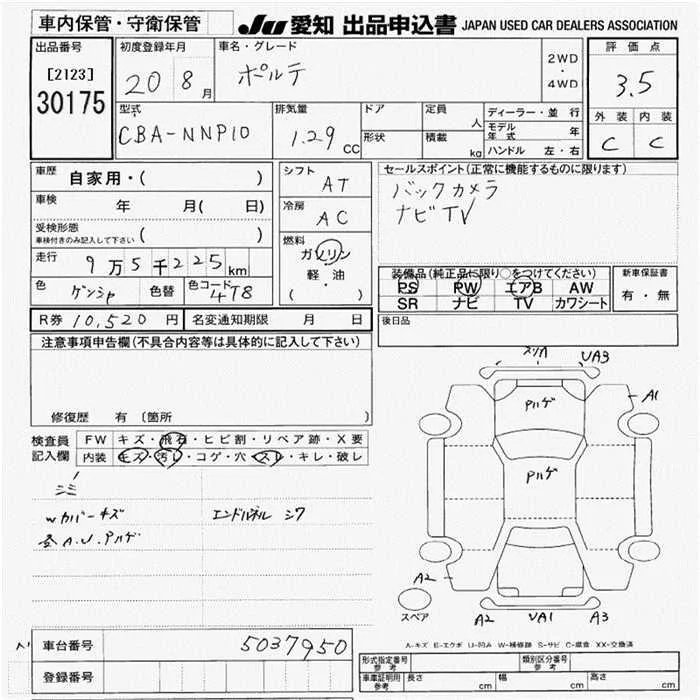 車内保管・守衛保管
JU 愛知 出品申込書 JAPAN USED CAR DEALERS ASSOCIATION
出品番号
[2123]
30175
初度登録年月
20 8月
車名・グレード
ポルテ
2WD
・
4WD
評価点
3.5
外装 内装
C C
型式
CBA-NNP10
排気量
1.29 CC
ドア
形状
定員 人
積載 kg
ディーラー・並行
モデル年式 年
ハンドル 左・右
車歴 自家用・( )
車検 年 月( 日)
受検形態
車検付きのみ記入して下さい ( )
走行 9万5千225km
色 ゲンシャ 色替 色コード 4T8
シフト AT
冷房 AC
燃料
ガソリン
軽・油
( )
セールスポイント(正常に機能するものに限ります)
バックカメラ
ナビTV
装備品(純正品に限り○をつけてください)
PS PW エアB AW
SR ナビ TV カワシート
新車保証書
有・無
R券 10,520 円 名変通知期限 月 日
後日品
注意事項申告欄(不具合内容等は具体的に記入して下さい)
修復歴 有 〔箇所
検査員
記入欄
FW キズ・飛石・ヒビ割・リペア跡・X要
内装 キズ・汚レ・コゲ・穴・スレ・キレ・破レ
Wカバーキズ
A.U.アルゲ
エンドパネル シワ
スリA UA3
A1
アルゲ
アルゲ
A2
スペア
A2 UA1 A3
A-キズ E-エクボ U-凹み W-補修跡 S-サビ C-腐食 XX-交換済
車台番号 5037950
登録番号
形式指定番号
参考
類別区分番号
参考
車庫証明用
参考
長さ cm 幅 cm 高さ cm